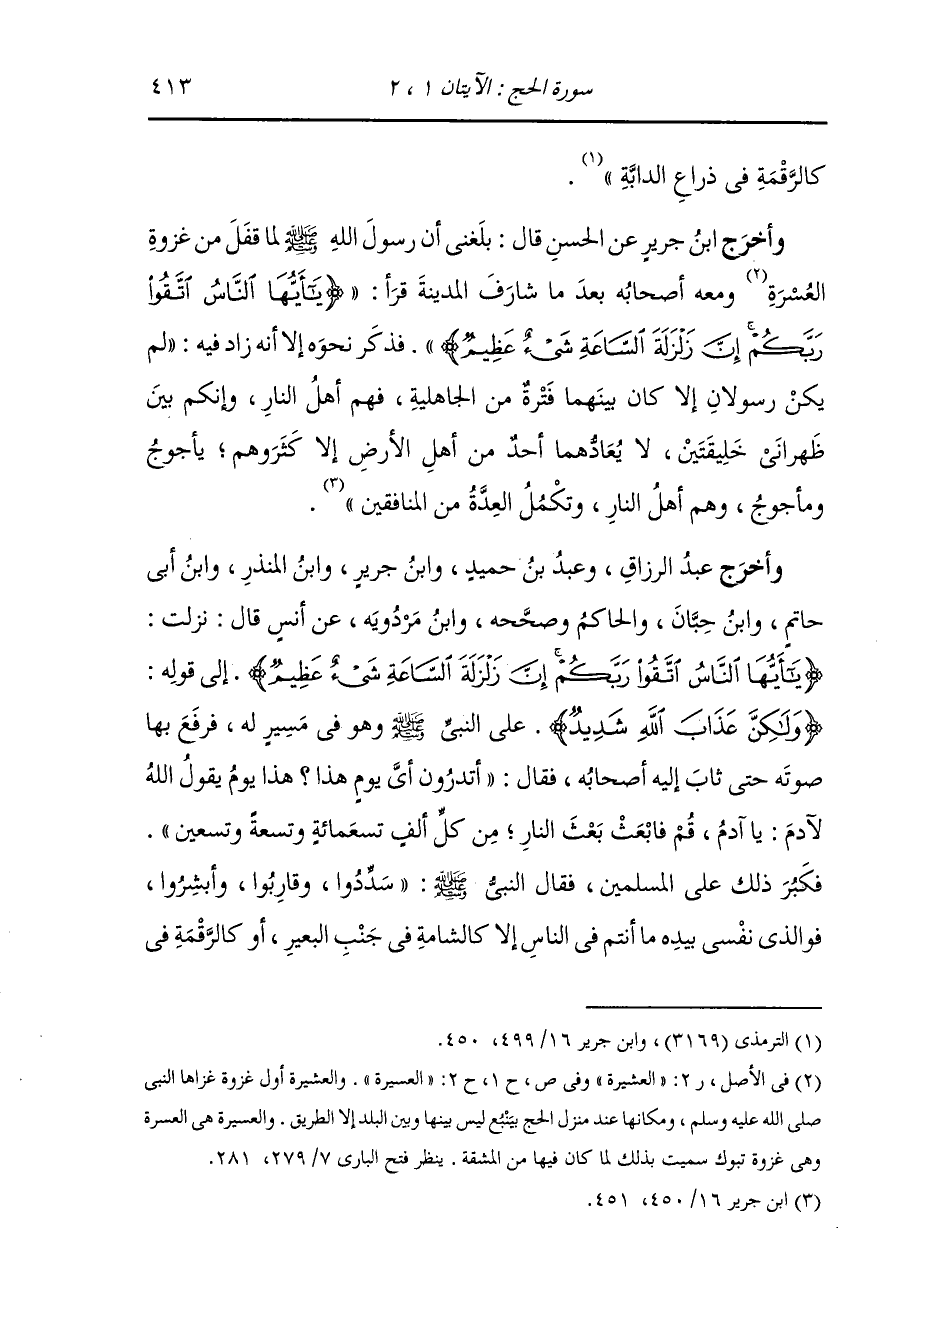 سورة الحج : الآيتان ١ ، ٢ ٤١٣
كالرَّقْمَةِ فى ذراعِ الدابَّةِ »(١) .
وأخرَج ابنُ جريرٍ عن الحسنِ قال : بلَغنى أن رسولَ اللهِ ﷺ لما قفَلَ من غزوةِ
العُسْرَةِ(٢) ومعه أصحابُه بعدَ ما شارَفَ المدينةَ قرَأ : « ﴿يَٰٓأَيُّهَا ٱلنَّاسُ ٱتَّقُوا۟
رَبَّكُمْ ۚ إِنَّ زَلْزَلَةَ ٱلسَّاعَةِ شَىْءٌ عَظِيمٌ﴾ » . فذكَر نحوَه إلا أنه زاد فيه : «لم
يكنْ رسولانِ إلا كان بينَهما فَتْرةٌ من الجاهليةِ ، فهم أهلُ النارِ ، وإنكم بينَ
ظَهرانَىْ خَلِيقَتَيْنِ ، لا يُعَادُّهما أحدٌ من أهلِ الأرضِ إلا كَثَروهم ؛ يأجوجُ
ومأجوجُ ، وهم أهلُ النارِ ، وتكْمُلُ العِدَّةُ من المنافقين »(٣) .
وأخرَج عبدُ الرزاقِ ، وعبدُ بنُ حميدٍ ، وابنُ جريرٍ ، وابنُ المنذرِ ، وابنُ أبى
حاتمٍ ، وابنُ حِبَّانَ ، والحاكمُ وصحَّحه ، وابنُ مَرْدُويَه ، عن أنسٍ قال : نزلت :
﴿يَٰٓأَيُّهَا ٱلنَّاسُ ٱتَّقُوا۟ رَبَّكُمْ ۚ إِنَّ زَلْزَلَةَ ٱلسَّاعَةِ شَىْءٌ عَظِيمٌ﴾ . إلى قولِه :
﴿وَلَٰكِنَّ عَذَابَ ٱللَّهِ شَدِيدٌ﴾ . على النبىِّ ﷺ وهو فى مَسِيرٍ له ، فرفَعَ بها
صوتَه حتى ثابَ إليه أصحابُه ، فقال : « أتدرُون أىَّ يومٍ هذا ؟ هذا يومُ يقولُ اللهُ
لآدمَ : يا آدمُ ، قُمْ فابْعَثْ بَعْثَ النارِ ؛ مِن كلِّ ألفٍ تسعَمائةٍ وتسعةً وتسعين » .
فكَبُرَ ذلك على المسلمين ، فقال النبىُّ ﷺ : « سَدِّدُوا ، وقارِبُوا ، وأبشِرُوا ،
فوالذى نفْسى بيدِه ما أنتم فى الناسِ إلا كالشامةِ فى جَنْبِ البعيرِ ، أو كالرَّقْمَةِ فى
(١) الترمذى (٣١٦٩) ، وابن جرير ١٦/ ٤٩٩، ٤٥٠.
(٢) فى الأصل ، ر ٢: « العشيرة » وفى ص ، ح ١، ح ٢: « العسيرة » . والعشيرة أول غزوة غزاها النبى
صلى الله عليه وسلم ، ومكانها عند منزل الحج بيَنْبُع ليس بينها وبين البلد إلا الطريق . والعسيرة هى العسرة
وهى غزوة تبوك سميت بذلك لما كان فيها من المشقة . ينظر فتح البارى ٧/ ٢٧٩، ٢٨١.
(٣) ابن جرير ١٦/ ٤٥٠، ٤٥١.